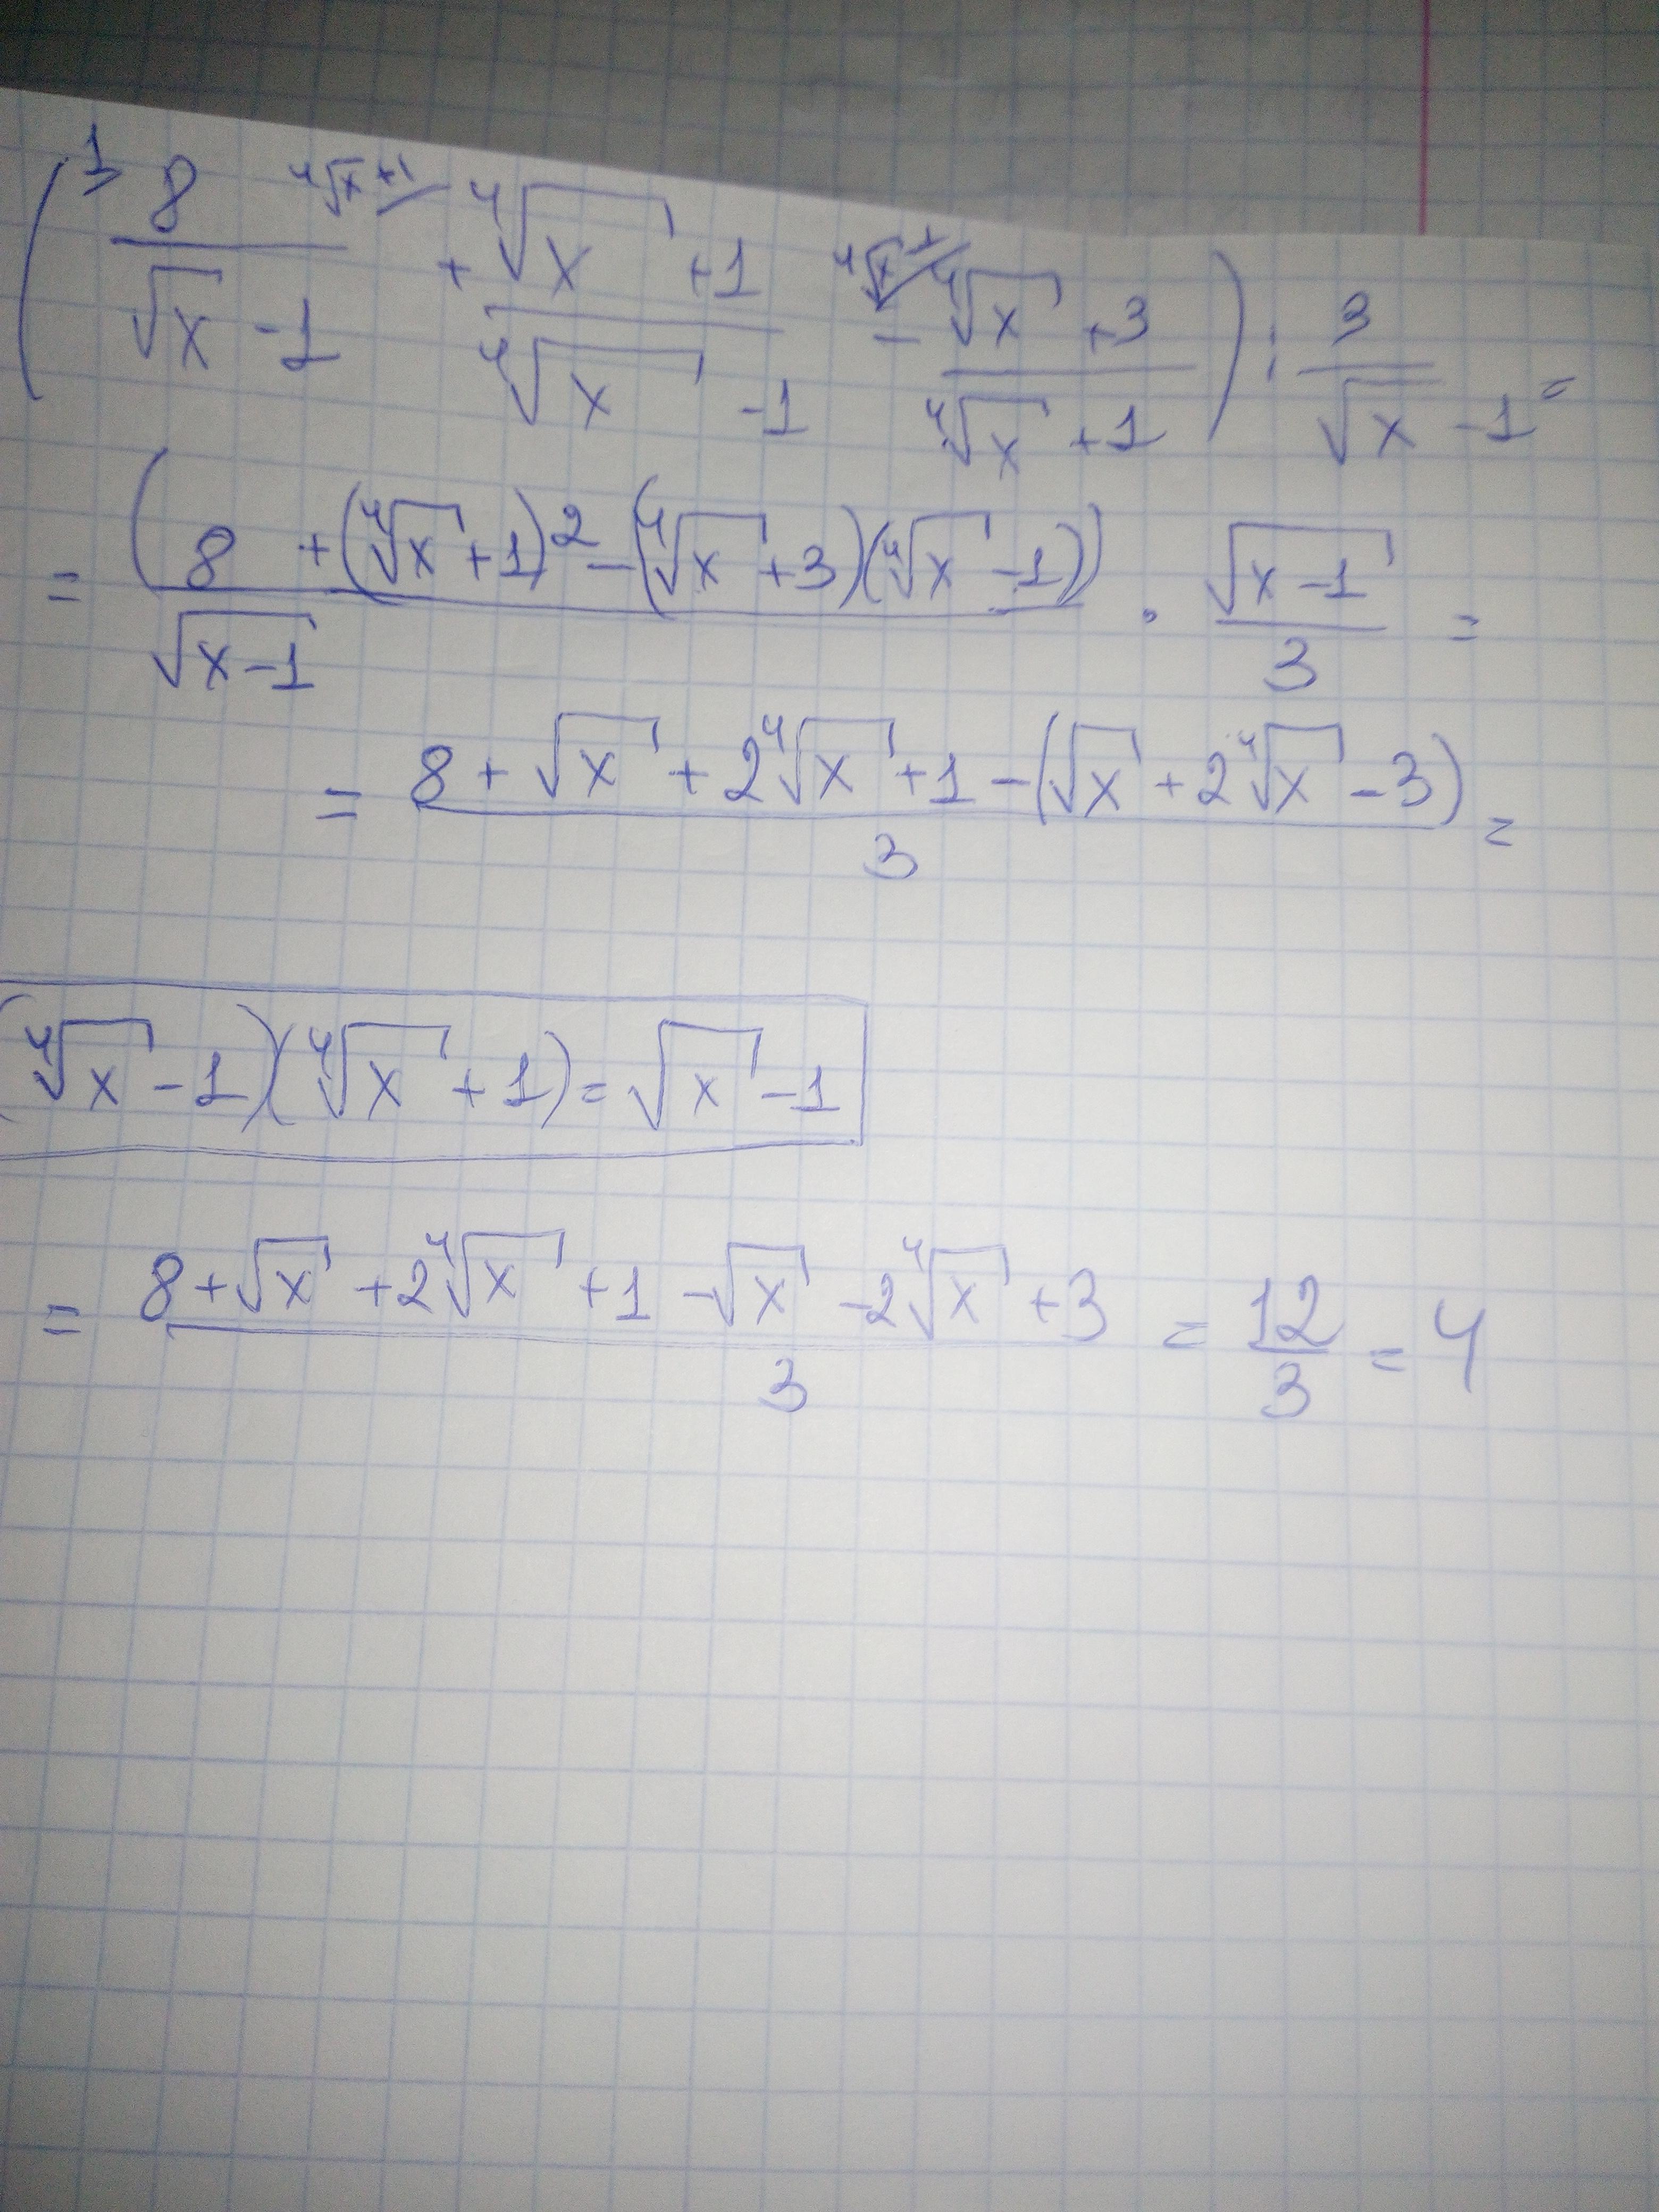 (¹⟩ 8/(√x - 1) ⁴√x+1⟋ + (⁴√x + 1)/(⁴√x - 1) ⁴√x-1⟋ - (⁴√x + 3)/(⁴√x + 1)) : 3/(√x - 1) =
= (8 + (⁴√x + 1)² - (⁴√x + 3)(⁴√x - 1))/√(x-1) · √(x-1)/3 =
= (8 + √x + 2⁴√x + 1 - (√x + 2⁴√x - 3))/3 =
(⁴√x - 1)(⁴√x + 1) = √x - 1
= (8 + √x + 2⁴√x + 1 - √x - 2⁴√x + 3)/3 = 12/3 = 4